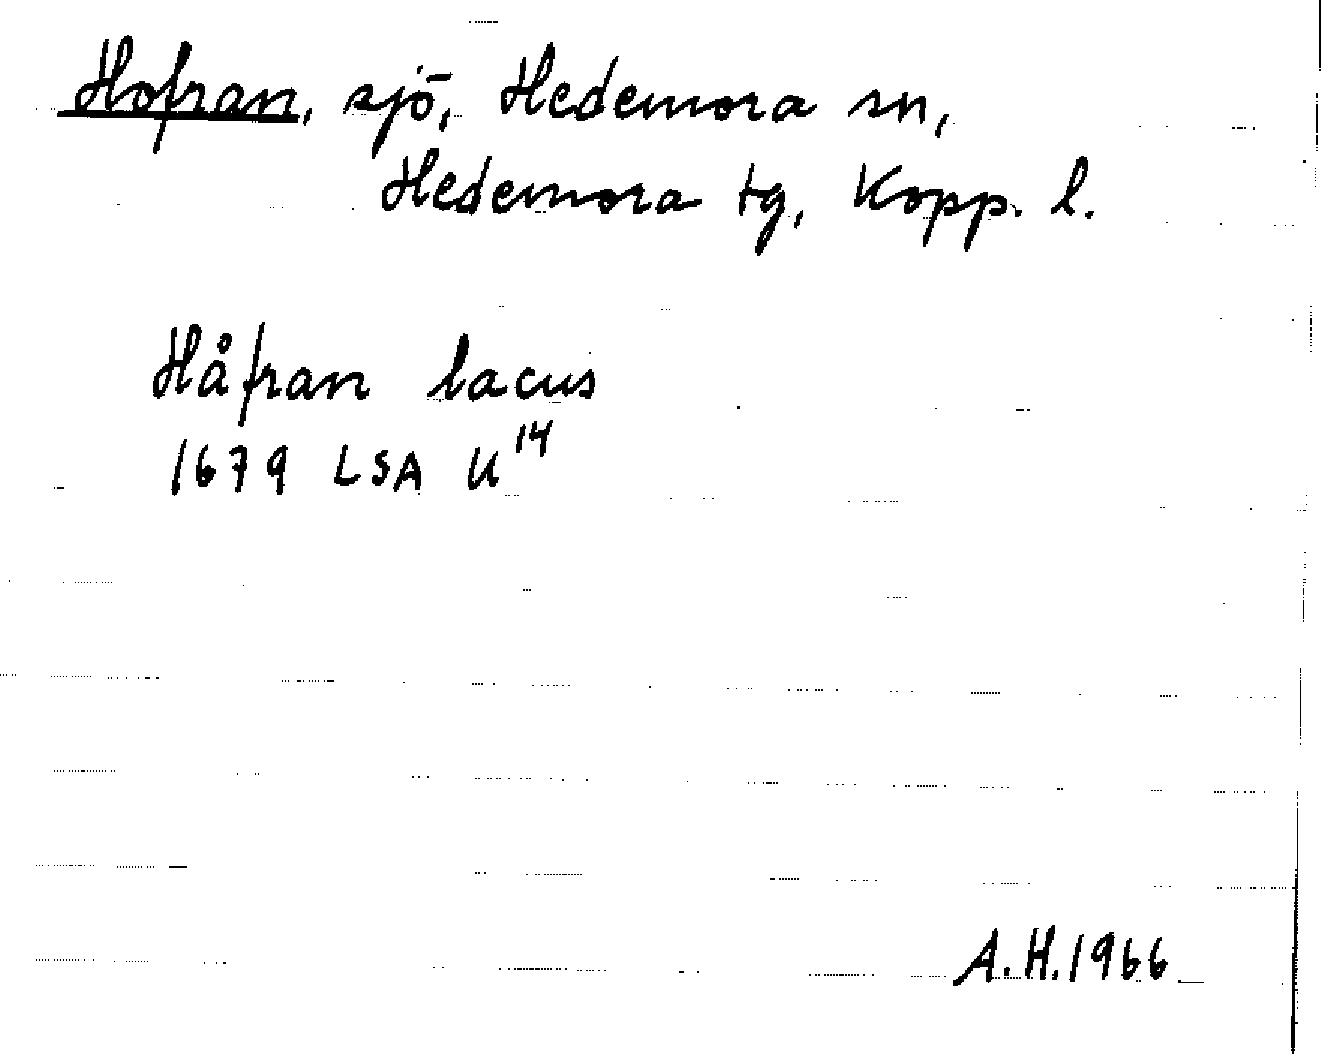 Hofran, sjö, Hedemora sn,
Hedemora tg, Kopp. l.
Håfran lacus
1679 LSA U14
A.H.1966